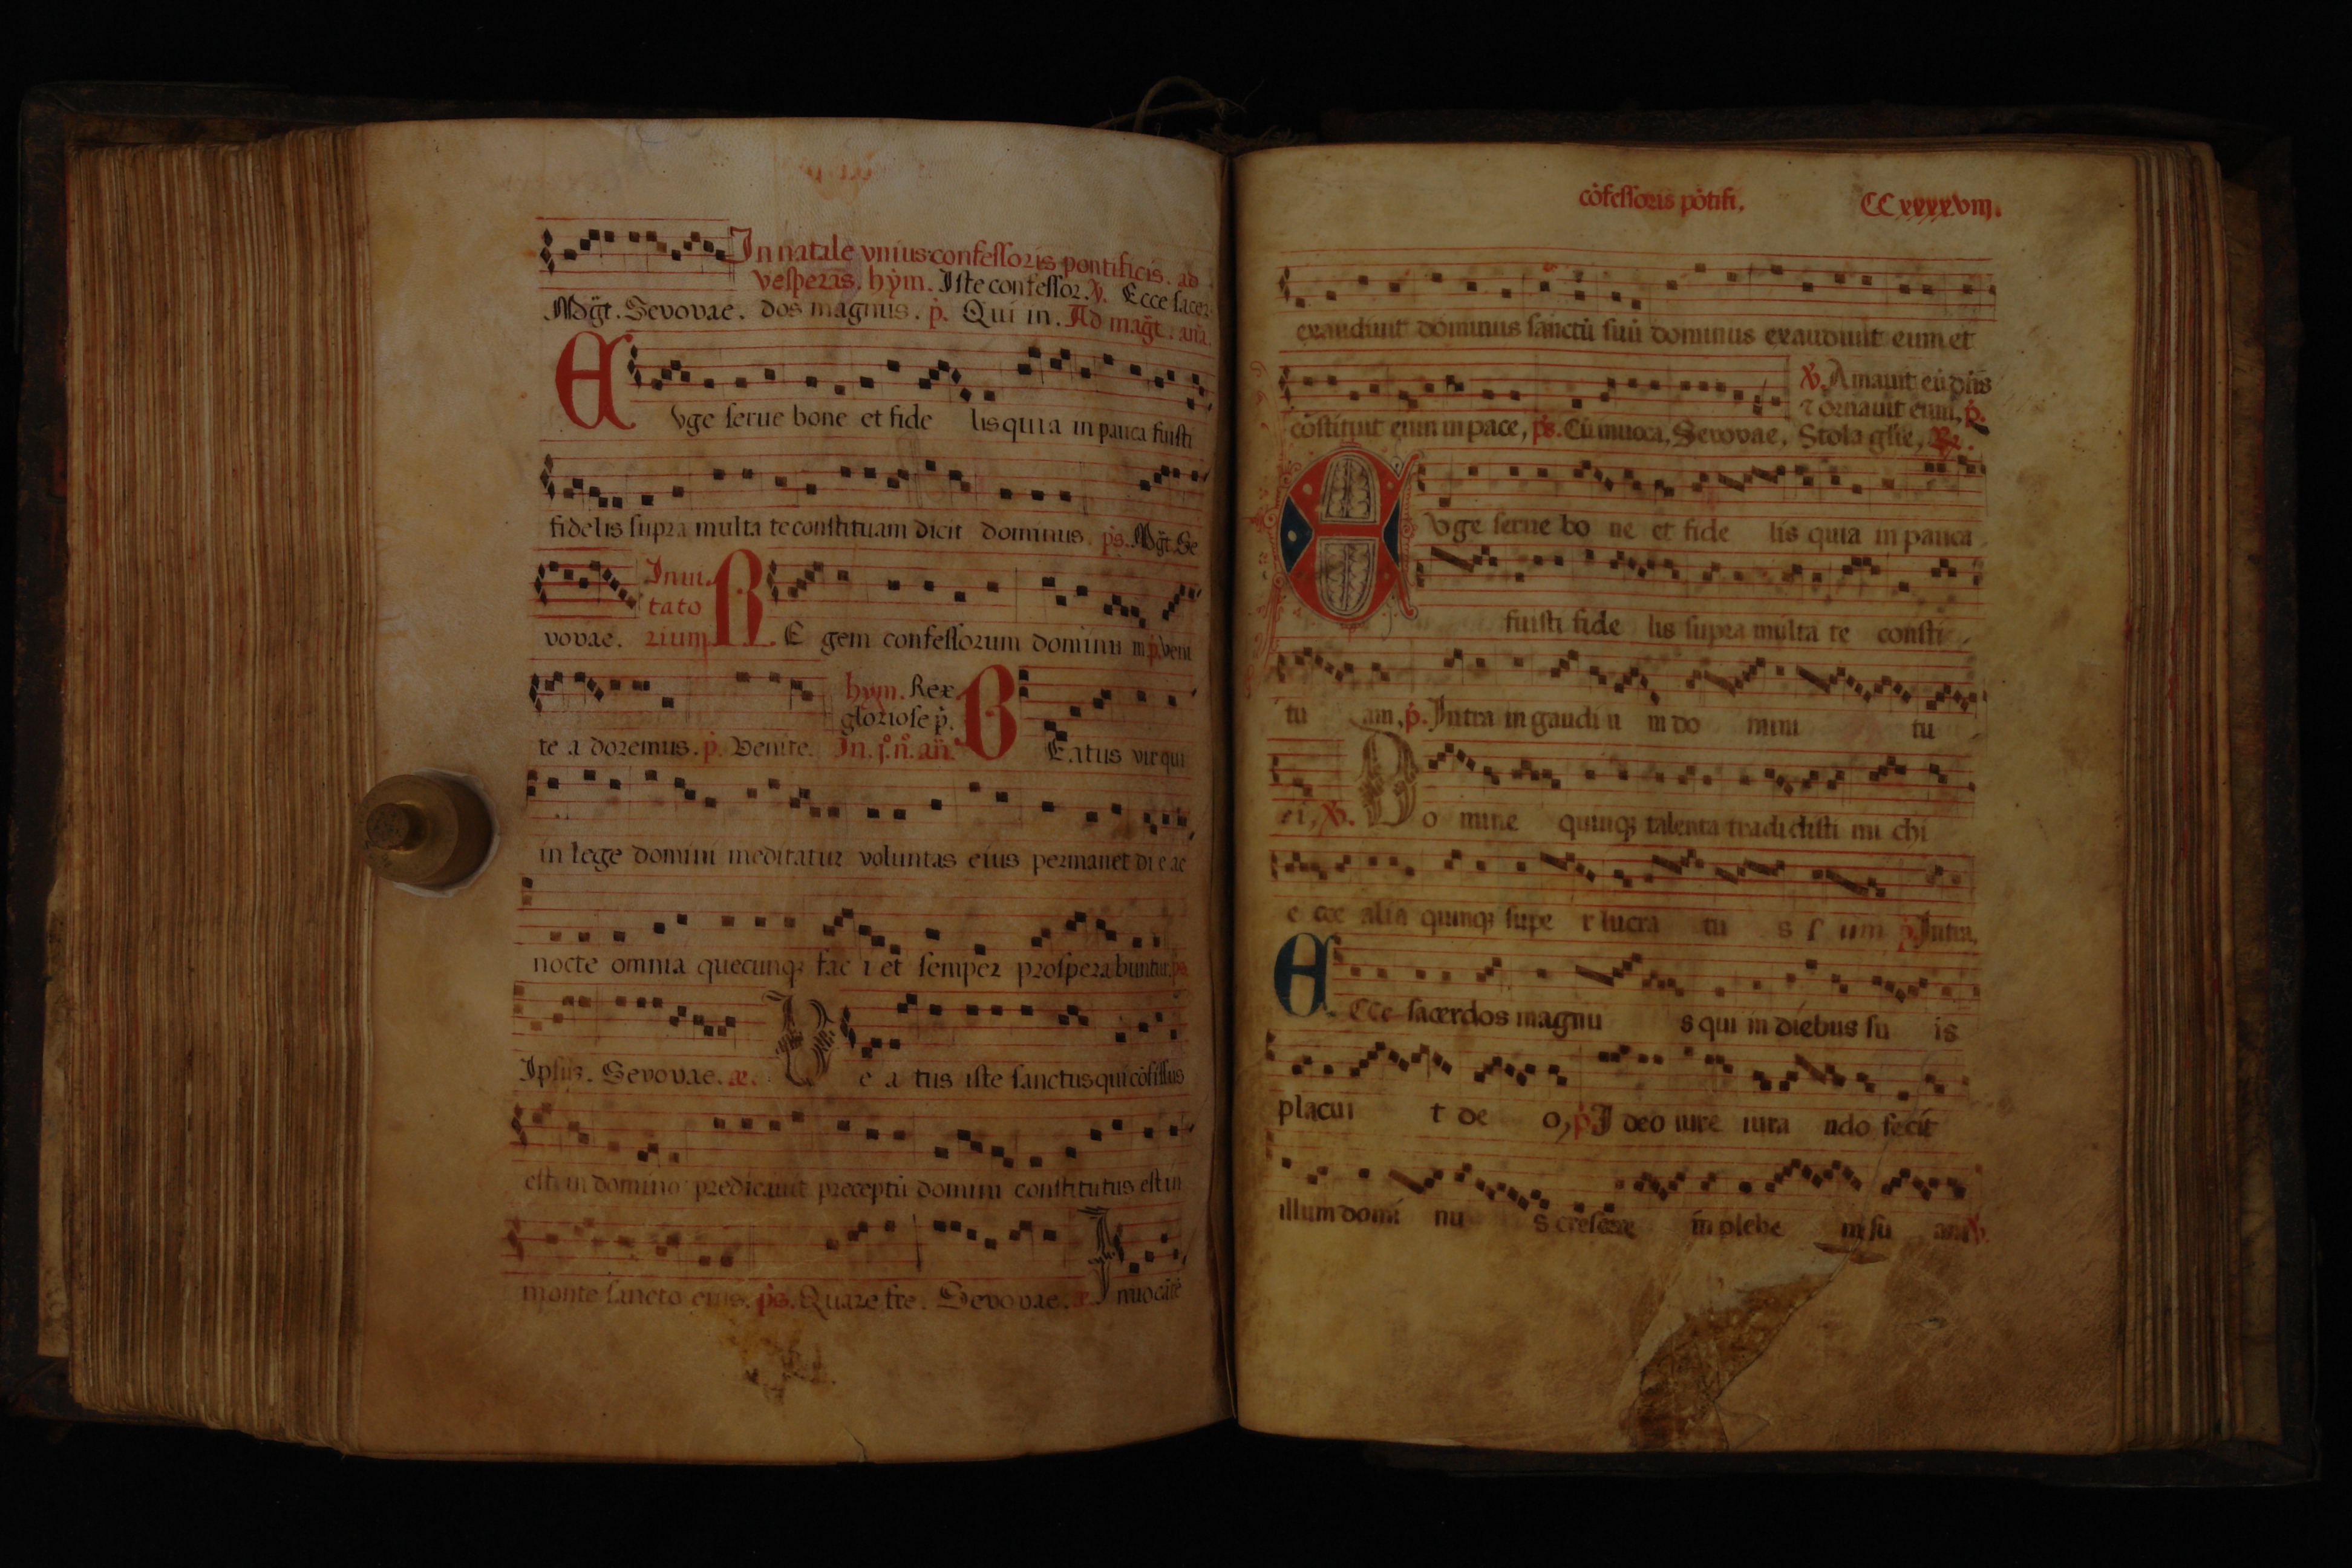 In natale vnius confessoris pontificis. ad
vesperas. hẏm. Iste confessor. ℣. Ecce sacer
Mg̃t. Seuouae. dos magnus. p̓. Qui in. Ad mag̃t. añ.
Evge serue bone et fide lis quia in pauca fuisti
fidelis supra multa te constituam dicit dominus. p̓s. Mg̃t. Se
vovae. Inui
tato
rium RE gem confessorum dominũ p̓. veni
te a doremus. p̓. Venite. hym. Rex
gloriose p̓.
In. j̊. n̊. añ. BEatus vir qui
in lege domini meditatur voluntas eius permanet di e ac
nocte omnia quecunqꝫ fac i et semper prospera buntur. p̓s.
Ipsiꝰ. Seuouae. æ. Be a tus iste sanctus qui cõfissus
est in domino predicauit preceptũ domini constitutus est in
monte sancto eius. p̓s. Quare fre. Seuouae. Inuocãte
cõfessoris põtifi. CCxxxxviij.
exaudiuit dominus sanctũ suũ dominus exaudiuit eum et
cõstituit eum in pace, p̓s. Cũ inuoca, Seuouae, ℣. Amauit eũ dñs
⁊ ornauit eum, p̓.
Stola gl̃ie, ℟.
Evge serue bo ne et fide lis quia in pauca
fuisti fide lis supra multa te consti
tu am, p̓. Intra in gaudi ũ in do mini tu
ri, ℣. Do mine quinqꝫ talenta tradidisti mi chi
e cce alia quinqꝫ supe r lucra tu s s um p̓ Intra,
ECce sacerdos magnu s qui in diebus su is
placui t de o, p̓ I deo iure iura ndo fecit
illum domi nu s crescere in plebe m su am ℣.